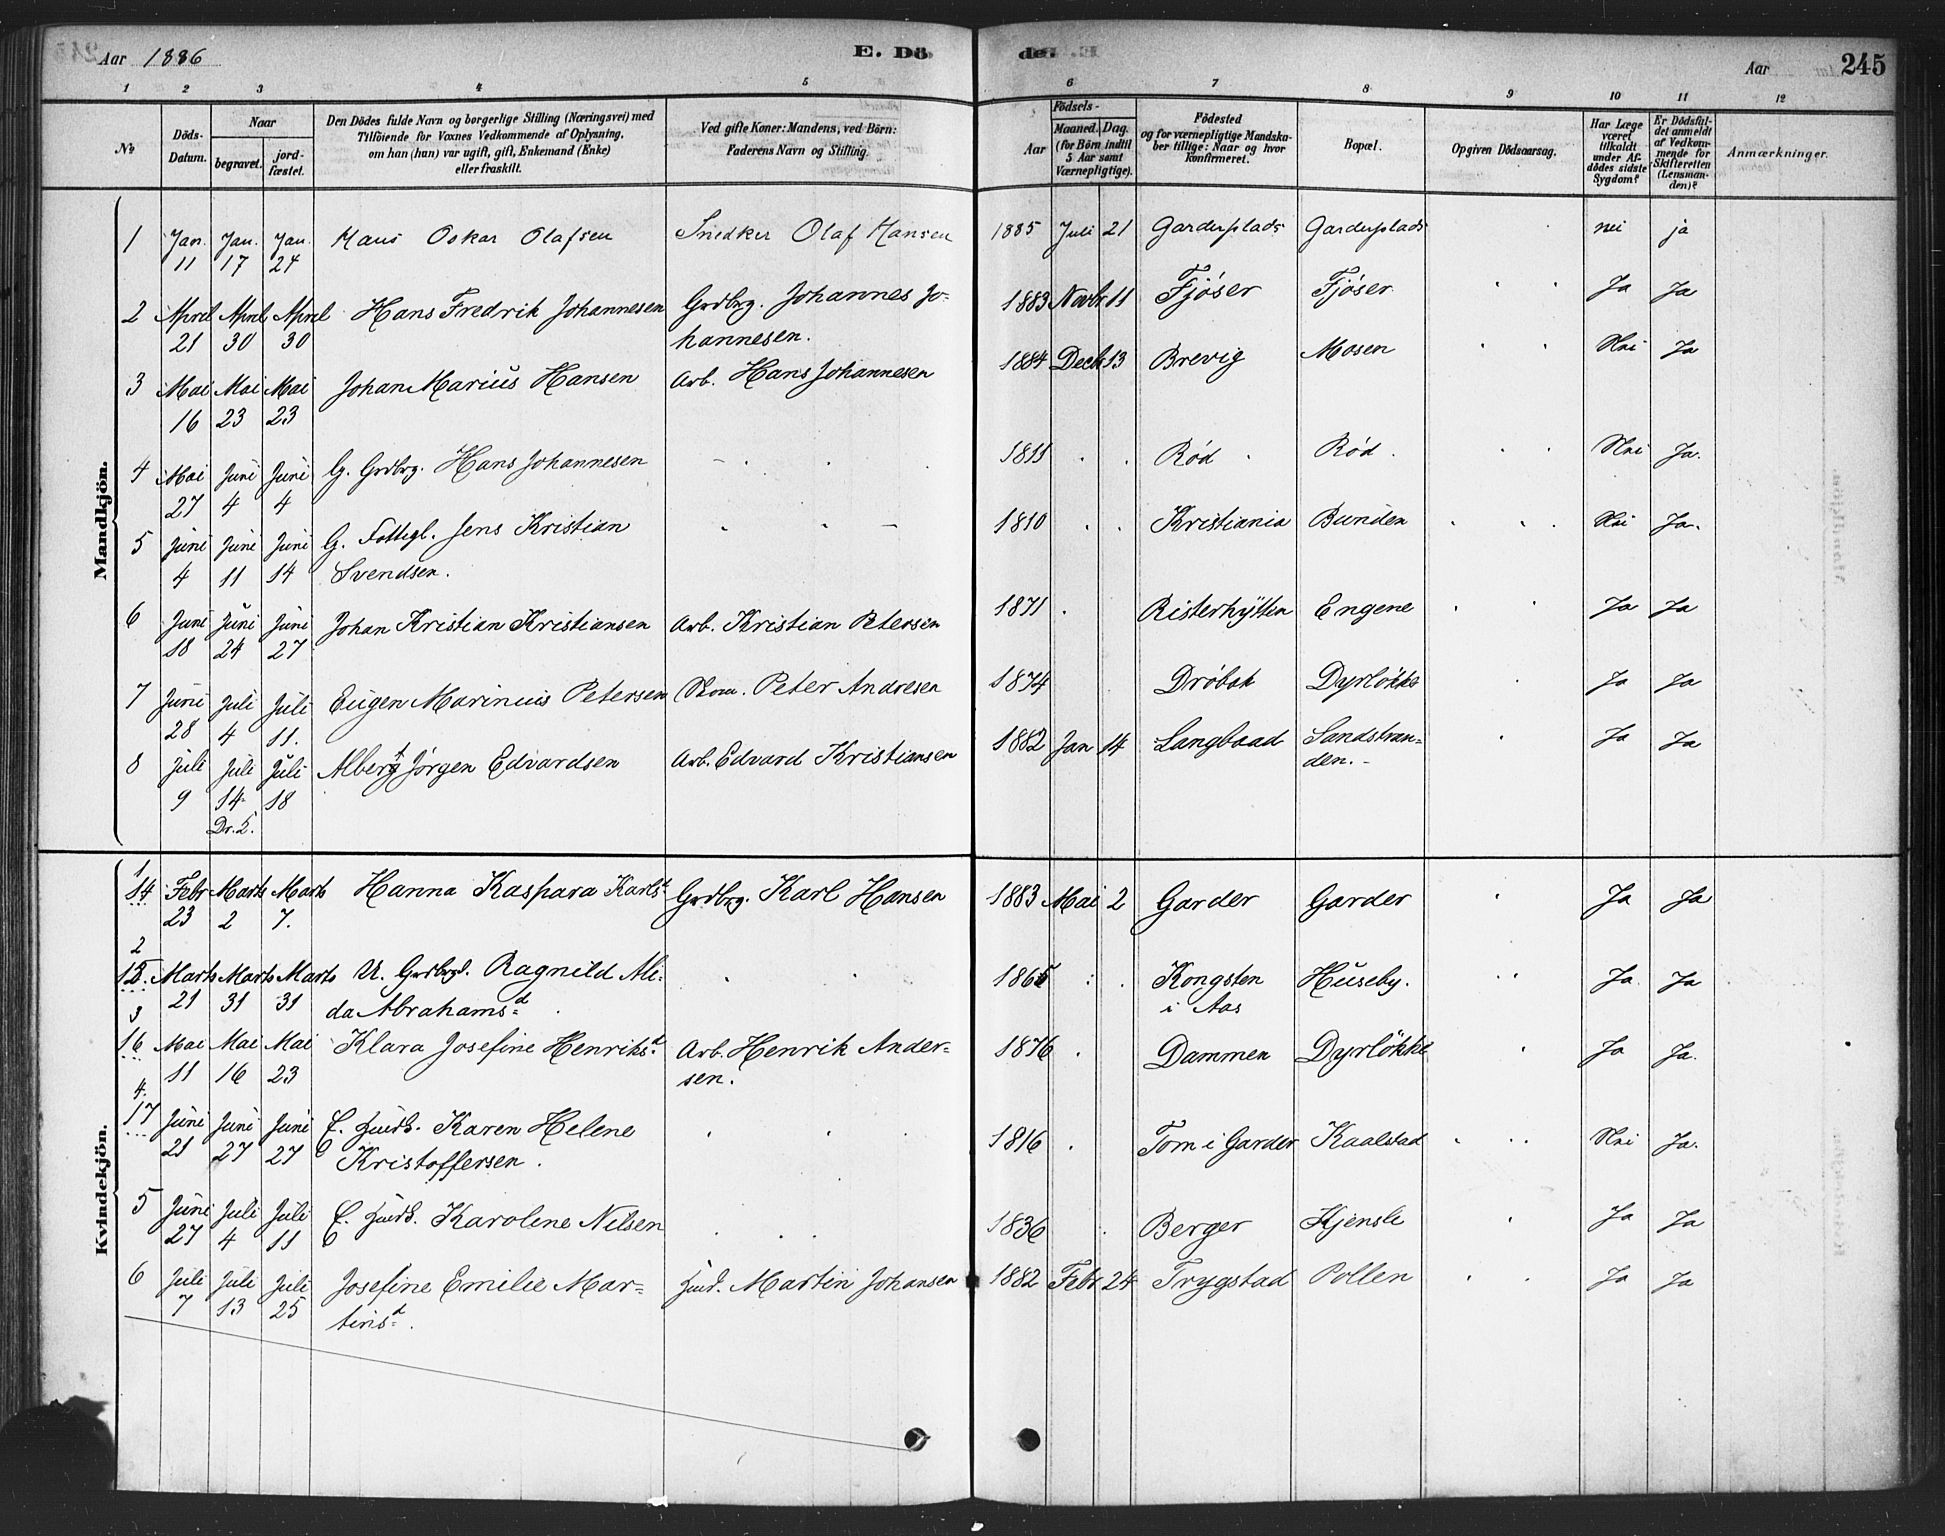 Aar 1886 E. Döde. Aar 245
1 2 3 4 5 6 7 8 9 10 11 12
No
Döds-Datum.
Naar
begravet.
jord-fæstet.
Den Dödes fulde Navn og borgerlige Stilling (Næringsvei) med
Tilföiende for Voxnes Vedkommende af Oplysning,
om han (hun) var ugift, gift, Enkemand (Enke)
eller fraskilt.
Ved gifte Koner: Mandens, ved Börn:
Faderens Navn og Stilling.
Födsels-
Aar
Maaned. Dag.
(for Börn indtil
5 Aar samt
Værnepligtige).
Födested
og for værnepligtige Mandska-
ber tillige: Naar og hvor
konfirmeret.
Bopæl.
Opgiven Dödsaarsag.
Har Læge
været
tilkaldt
under Af-
dödes sidste
Sygdom?
Er Dödsfal-
det anmeldt
af Vedkom-
mende for
Skifteretten
(Lensman-
den)?
Anmærkninger.
Mandkjön.
1 Jan. Jan. Jan. Hans Oskar Olafsen Snedker Olaf Hansen 1885 Juli 21 Garderplads Garderplads nei ja
11 17 24
2 April April April Hans Fredrik Johannesen Grdbrg. Johannes Jo- 1883 Novbr 11 Fjöser Fjöser Ja Ja
21 30 30 hannesen.
3 Mai Mai Mai Johan Marius Hansen Arb. Hans Johannesen 1884 Decb 13 Brevig Mosen Nei Ja
16 23 23
4 Mai Juni Juni G. Grdbrg. Hans Johannesen 1811 Röd Röd Nei Ja.
27 4 4
5 Juni Juni Juni G. Fattigl. Jens Kristian 1810 Kristiania Bunden Nei Ja.
4 11 14 Svendsen.
6 Juni Juni Juni Johan Kristian Kristiansen Arb. Kristian Petersen 1871 Risterhytten Engene Ja Ja
18 24 27
7 Juni Juli Juli Eugen Marinius Petersen Skom. Peter Andresen 1874 Dröbak Dyrlökke Ja Ja
28 4 11.
8 Juli Juli Juli Albert Jörgen Edvardsen Arb. Edvard Kristiansen 1882 Jan 14 Langbaad Sandstran=
den.
Ja Ja
9 14 18
Dr. 5.
Kvindekjön.
1
14 Febr Marts Marts Hanna Kaspara Karlsd Grdbrg. Karl Hansen 1883 Mai 2 Garder Garder Ja Ja
23 2 7.
2
15. Marts Marts Marts U. Grdbrgd. Ragnild Ali- 1865 Kongsten Huseby. Ja Ja
21 31 31 da Abrahamsd i Aas
3
16 Mai Mai Mai Klara Josefine Henriksd Arb. Henrik Ander= 1876 Dammen Dyrlökke Ja Ja.
11 16 23 sen.
4.
17 Juni Juni Juni E. Husb. Karen Helene 1816 Tom i Garder Kaalstad Nei Ja.
21 27 27 Kristoffersen.
5 Juni Juli Juli E. Husb. Karoline Nilsen 1836 Berger Kjensli Ja Ja
27 4 11
6 Juli Juli Juli Josefine Emilie Mar= Husb. Martin Johansen 1882 Febr 24 Trygstad Pollen Ja Ja
7 13 25 tinsd.